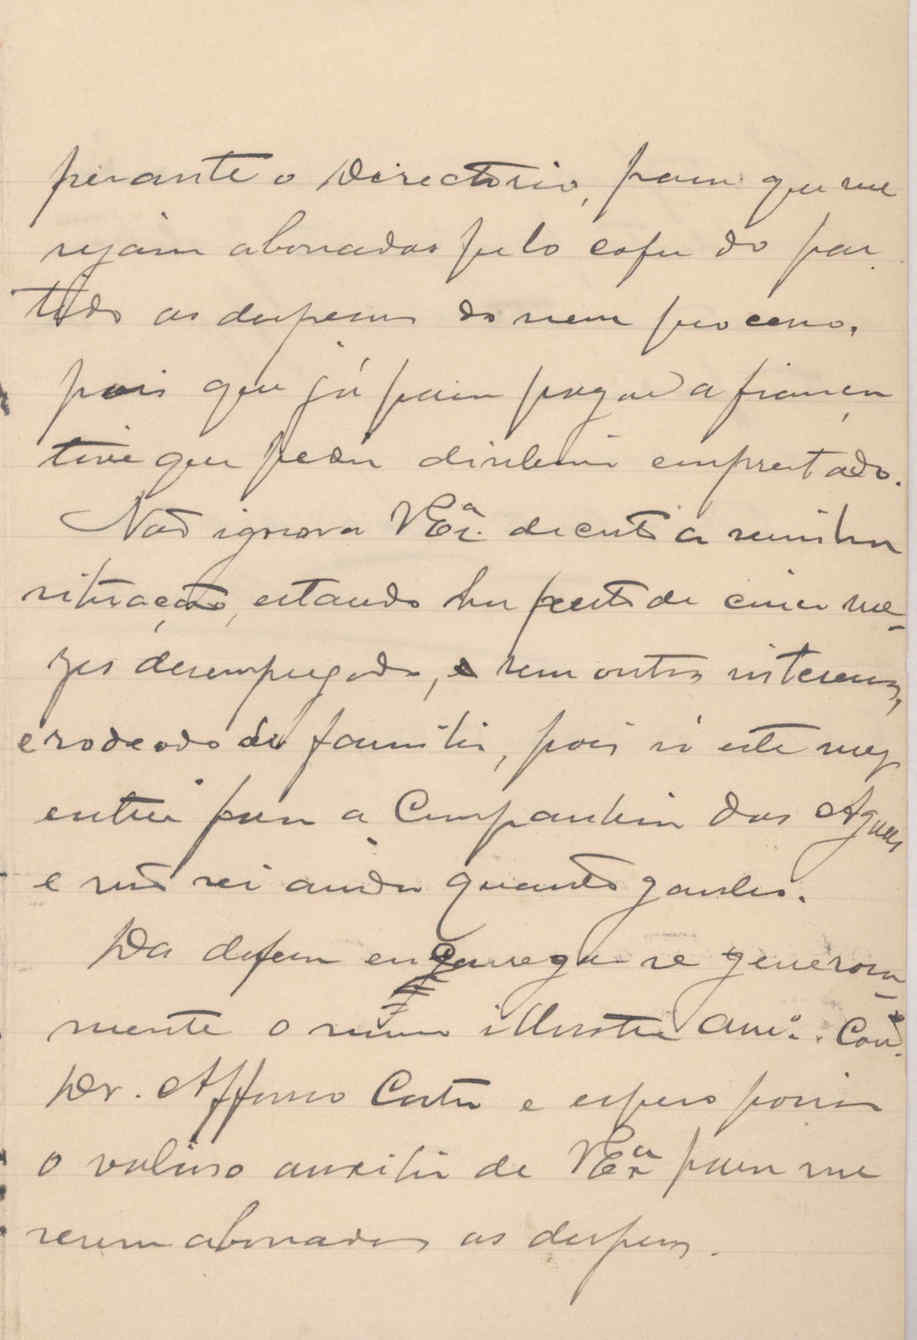 perante o Directorio, para que me
sejam abonadas pelo cofre do par-
tido as despesas do meu processo,
pois que já para pagar a fiança
tive que pedir dinheiro emprestado.
Não ignora V Exª. de certo a minha
situação, estando ha perto de cinco me-
zes desempregado, e sem outros interesses,
e rodeado de familia, pois só este mez
entrei para a Companhia das Aguas
e não sei ainda quanto ganho.
Da defesa encarrega-se generosa-
mente o meu illustre Amº. Cons.
Dr. Affonso Costa e espero porem
o valioso auxilio de V Exª para me
serem abonadas as despesas.